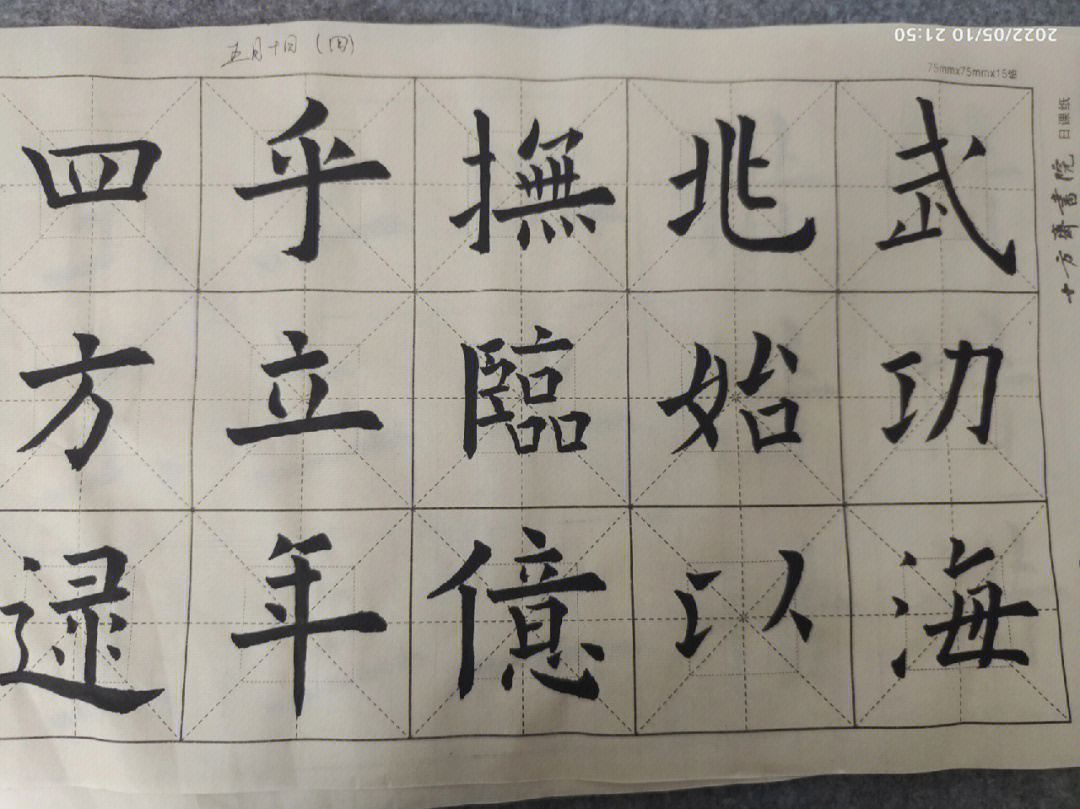 五月十日（四）
2022/05/10 21:50
75mmx75mmx15格
四方逮
乎立年
撫臨億
兆始以
武功海
十方齋書院 日课纸